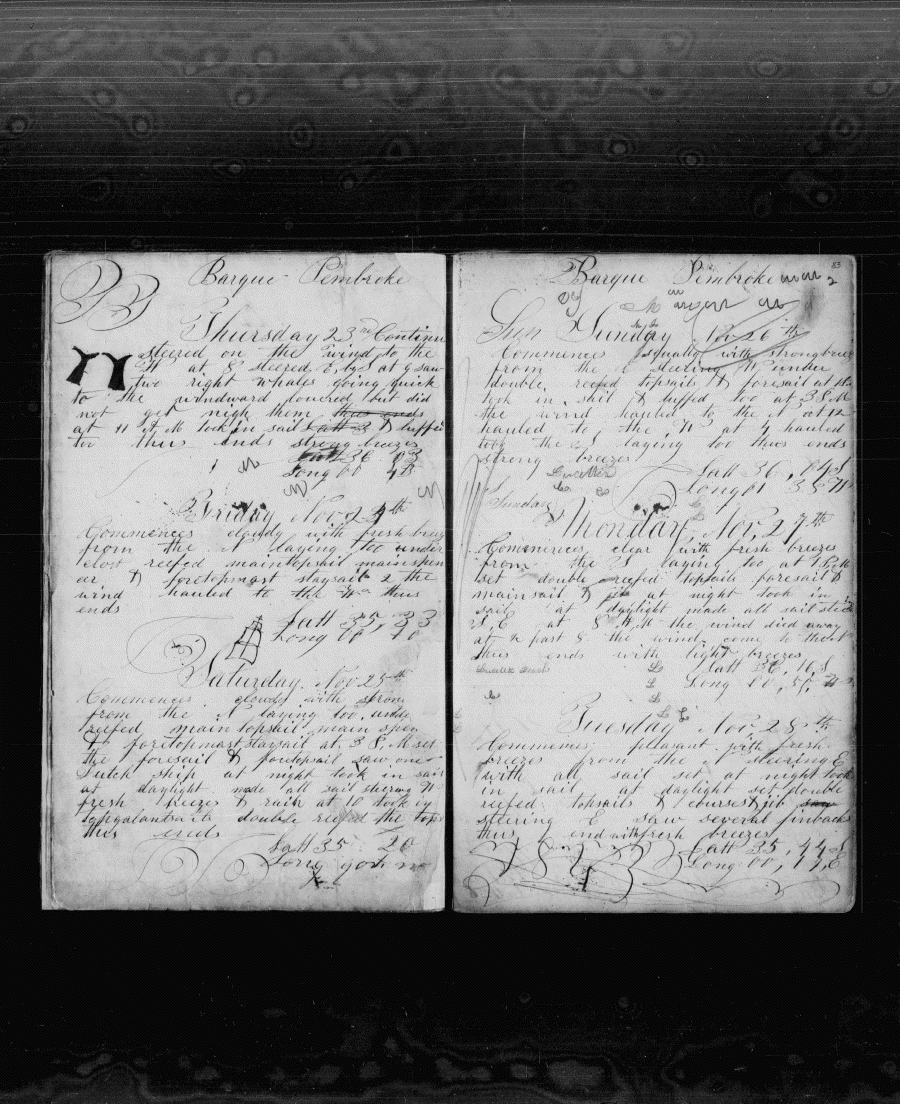 Barque Pembroke
Thursday 23rd Continu
steered on the wind to the
W at 8 steered E by S at 9 saw
two right whales going quick
to the windward lowered but did
not get nigh them thus ends
at 11 A M took in sail Latt 3 & luffed
too thus ends strong breezes
Latt 36 03
Long 00 43
Friday Nov 24th
Commences cloudy with fresh breez
from the N laying too under
close reefed maintopsail main spen
er & foretopmast staysail 2 the
wind hauled to the W thus
ends
Latt 35, 33
Long 00 40
Saturday Nov 25th
Commences cloudy with stron
from the N laying too undr
reefed maintopsail main spen
& foretopmast staysail at 3 P M set
the foresail & foretopsail saw one
Dutch ship at night took in sail
at daylight made all sail steering N
fresh breeze & rain at 10 took in
topgalantsails double reefed the tops
thus ends
Latt 35 20
Long 00
83
Barque Pembroke
Sun Sunday Nov 26th
Commences squally with strong breez
from the N steering W under
double reefed topsails & foresail at 12
took in sail & luffed too at 3 P M
the wind hauled to the N at 12
hauled to the W at 4 hauled
to the S laying too thus ends
strong breezes
Latt 36, 04 S
Long 01 35 W
Sunday
Monday Nov, 27th
Commences clear with fresh breezes
from the S laying too at 1 P M
set double reefed topsails foresail &
mainsail & jib at night took in
sail at daylight made all sail steer
S, E at 8 A M the wind died away
at ½ past 8 the wind come to the N
thus ends with light breezes
Latt 36, 16, S
Long 00, 51, W
Tuesday Nov, 28th
Commences pleasant with fresh
breezes from the N steering E
with all sail set at night took
in sail at daylight set double
reefed topsails & courses & jib saw
steering E saw several finbacks
thus end with fresh breezes
Latt 35, 44, S
Long 00, 17, E